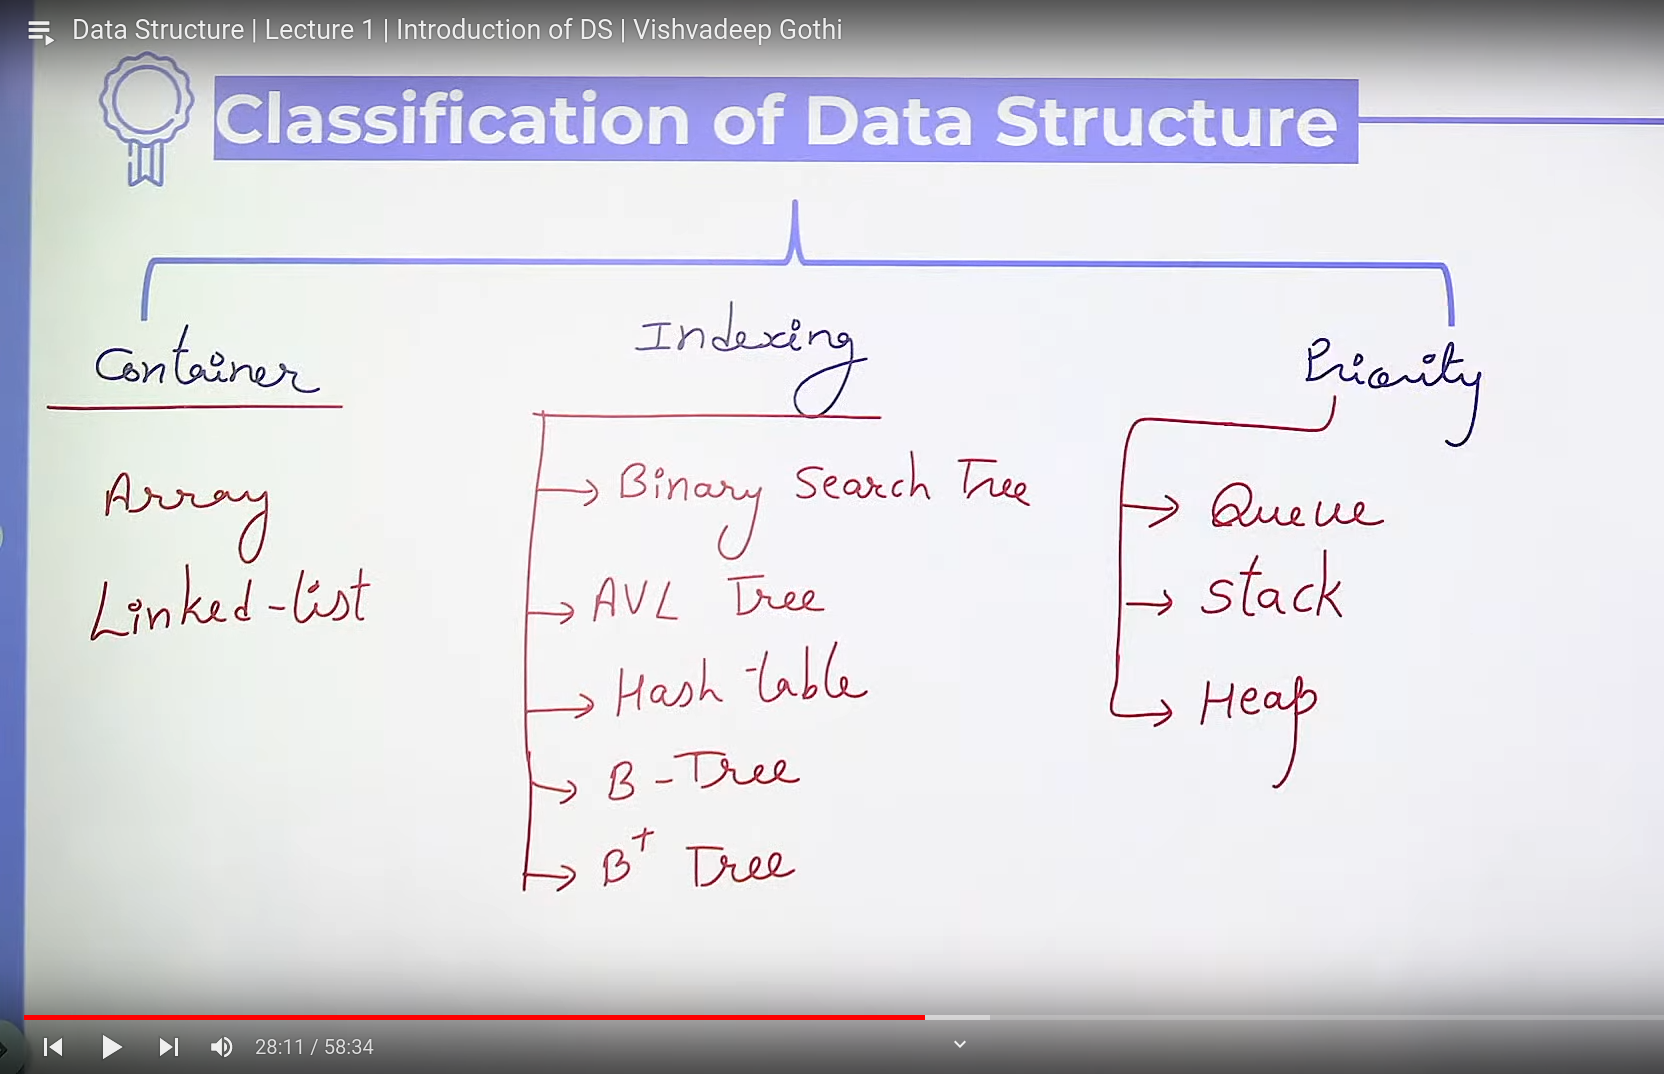 Data Structure | Lecture 1 | Introduction of DS | Vishvadeep Gothi
Classification of Data Structure
Container
Array
Linked-list
Indexing
Binary Search Tree
AVL Tree
Hash table
B-Tree
B+ Tree
Priority
Queue
Stack
Heap
28:11 / 58:34